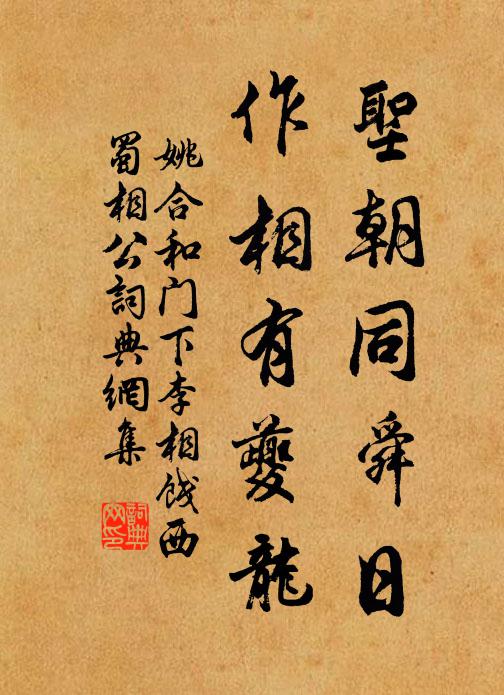 聖朝同舜日
作相有夔龍
姚合和门下李相餞西
蜀相公詞典網集
詞典
网印